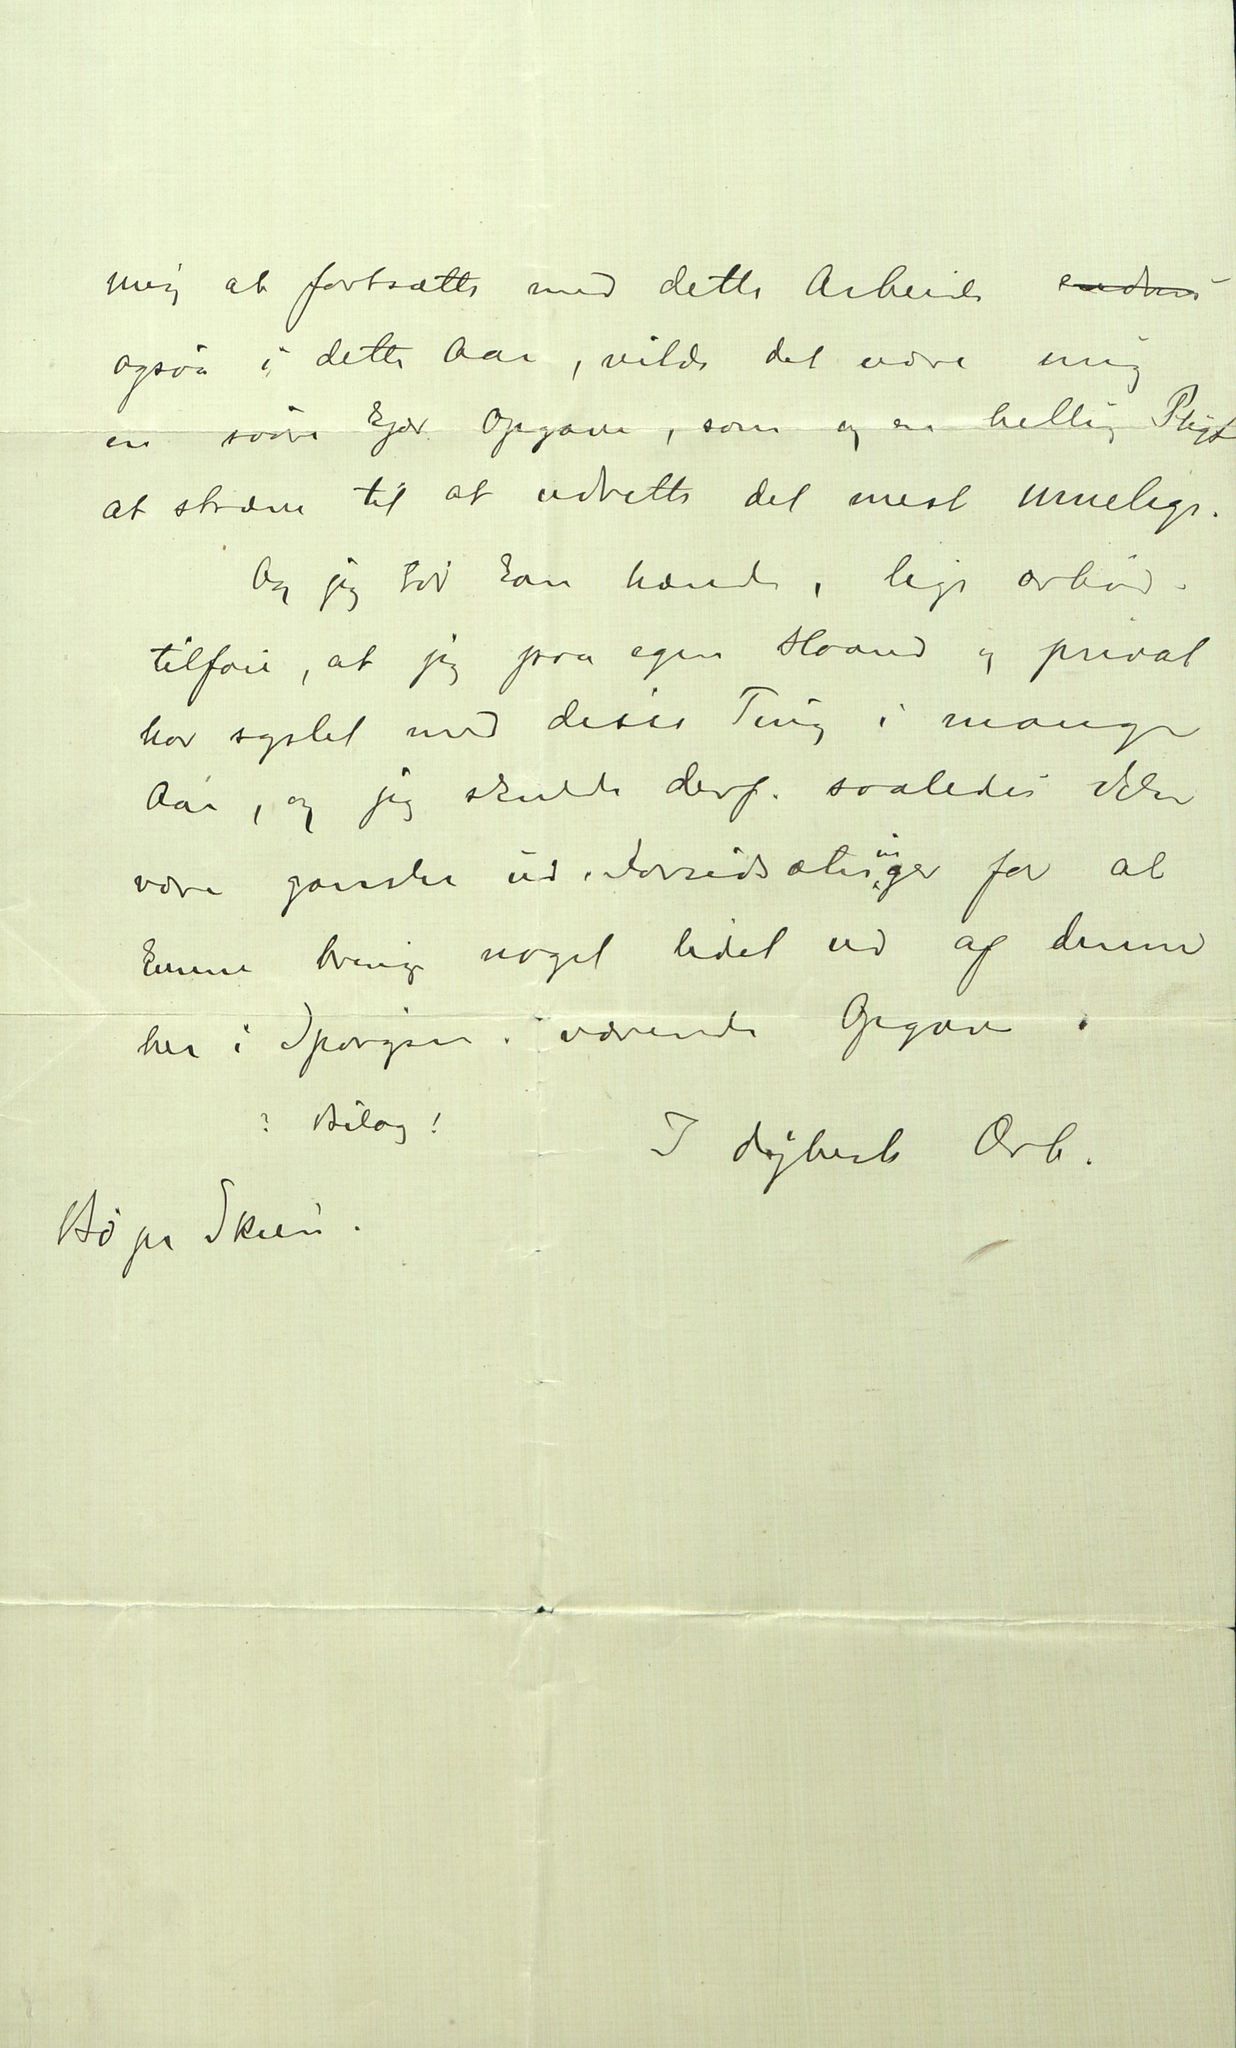 mig at fortsætte med dette Arbeide endnu
også i dette Aar, vilde det være mig
en såre kjær Opgave, som og en hellig Pligt
at stræve til at udrette det mest muelige.
Og jeg tør kan hænde, lige ærbød.
tilføie, at jeg paa egen Haand og privat
har syslet med disse Ting i mange
Aar, og jeg skulde derf. saaledes ikke
være ganske ud. Forudsætninger for at
kunne bringe noget lidet ud af denne
her i Spørgsm. værende Opgave.
: Bilag!
I dybeste Ærb.
Bø pr Skien.